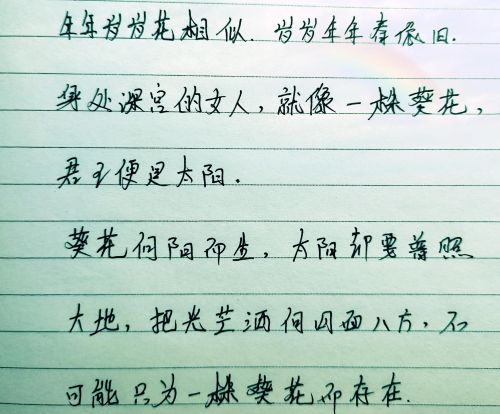 年年岁岁花相似.岁岁年年春依旧.
身处深宫的女人,就像一株葵花,
君王便是太阳.
葵花向阳而生,太阳却要普照
大地,把光芒洒向四面八方,不
可能只为一株葵花而存在.